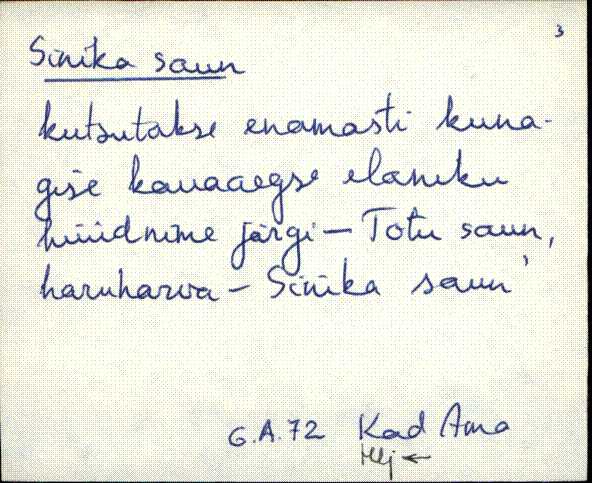 3
Sinika saun
kutsutakse enamasti kuna-
gise kauaaegse elaniku
hüüdnime järgi – Totu saun,
haruharva – Sinika saun'
G.A.72 Kad
Hlj ←